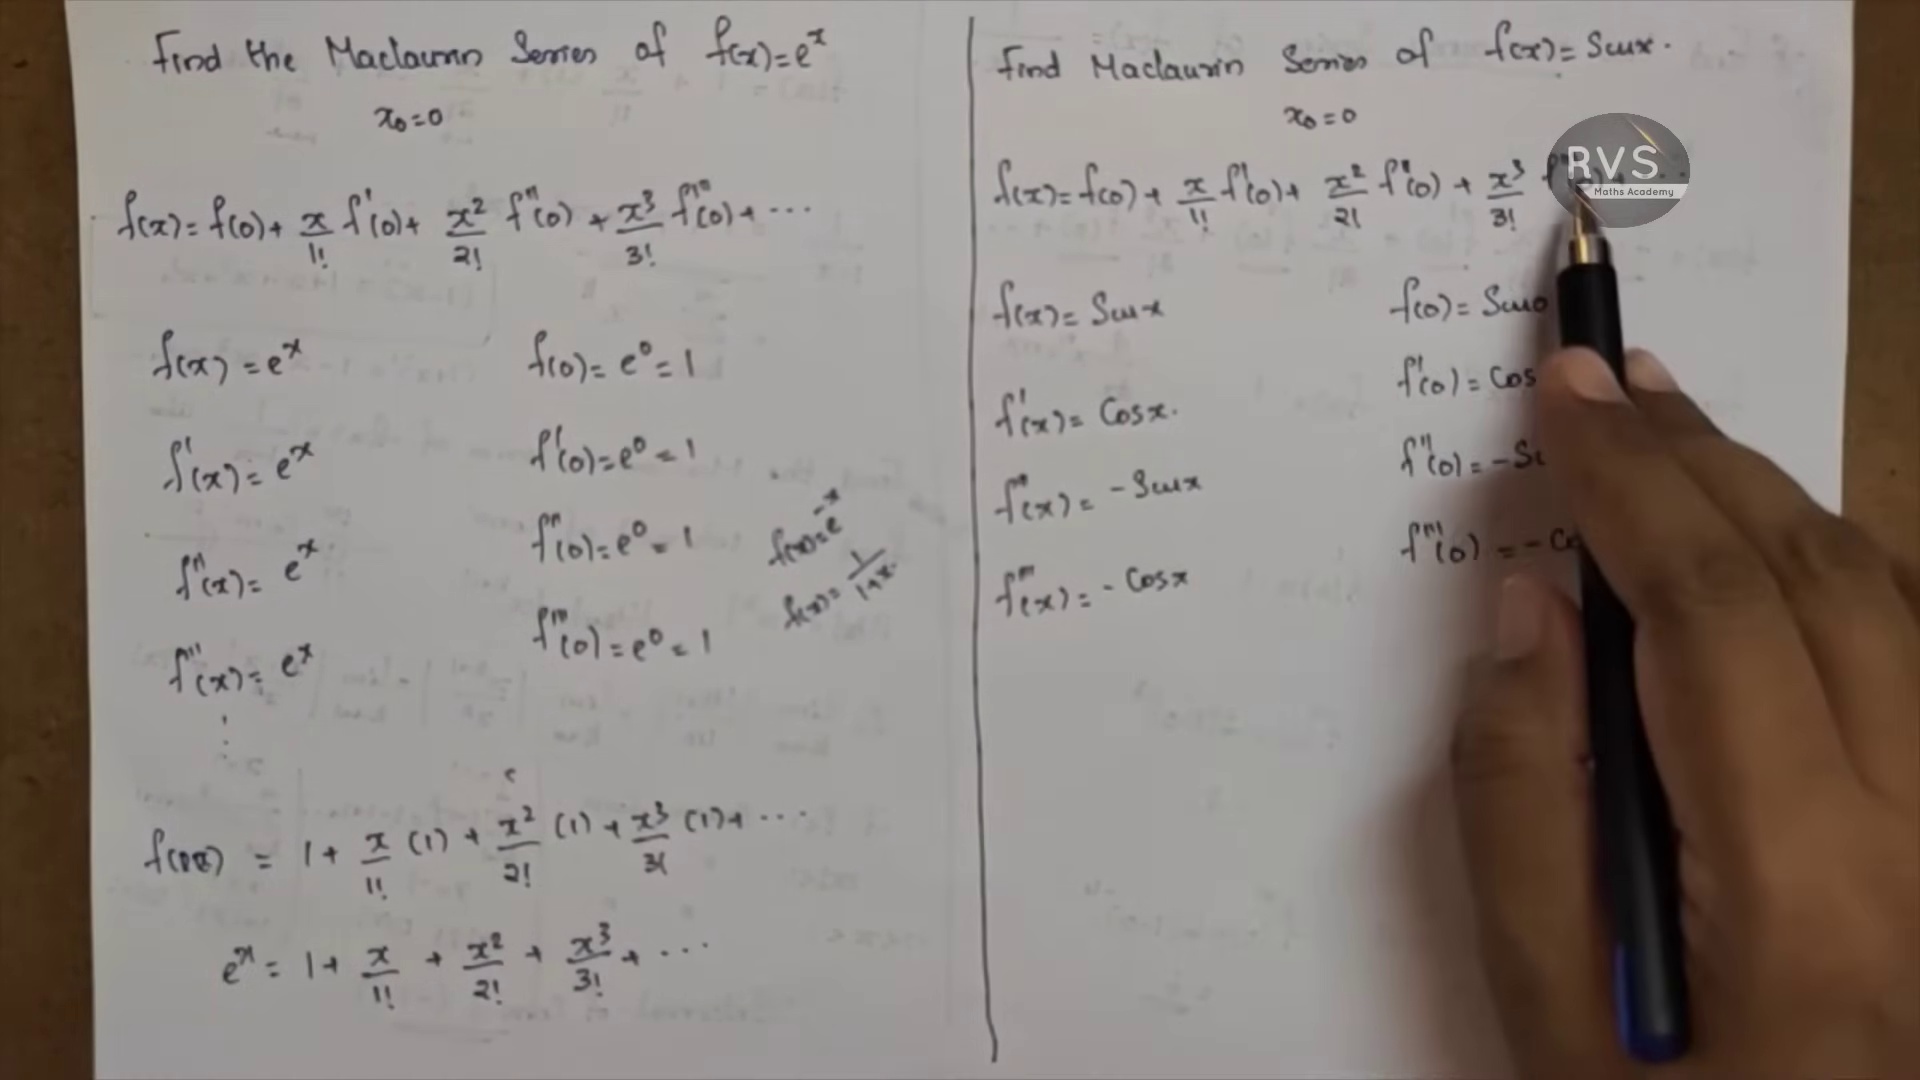 Find the Maclaurin Series of f(x)=eˣ
x₀=0
f(x)= f(0)+ x/1! f'(0)+ x²/2! f''(0) + x³/3! f'''(0)+ ...
f(x) = eˣ f(0)= e⁰= 1
f'(x)= eˣ f'(0)=e⁰ = 1
f''(x)= eˣ f''(0)=e⁰ = 1
f'''(x)= eˣ f'''(0)=e⁰ = 1
f(x)=e⁻ˣ
f(x)= 1/1+x.
= 1+ x/1! (1) + x²/2! (1) + x³/3! (1)+ ...
eˣ = 1+ x/1! + x²/2! + x³/3! + ...
Find Maclaurin Series of f(x)= Sinx.
x₀=0
f(x)= f(0)+ x/1! f'(0)+ x²/2! f''(0) + x³/3!
RVS
Maths Academy
f(x)= Sinx f(0)= Sin0
f'(x)= Cosx. f'(0)= Cos
f''(x)= -Sinx f''(0)= -Si
f'''(x)= -Cosx f'''(0) = -Co